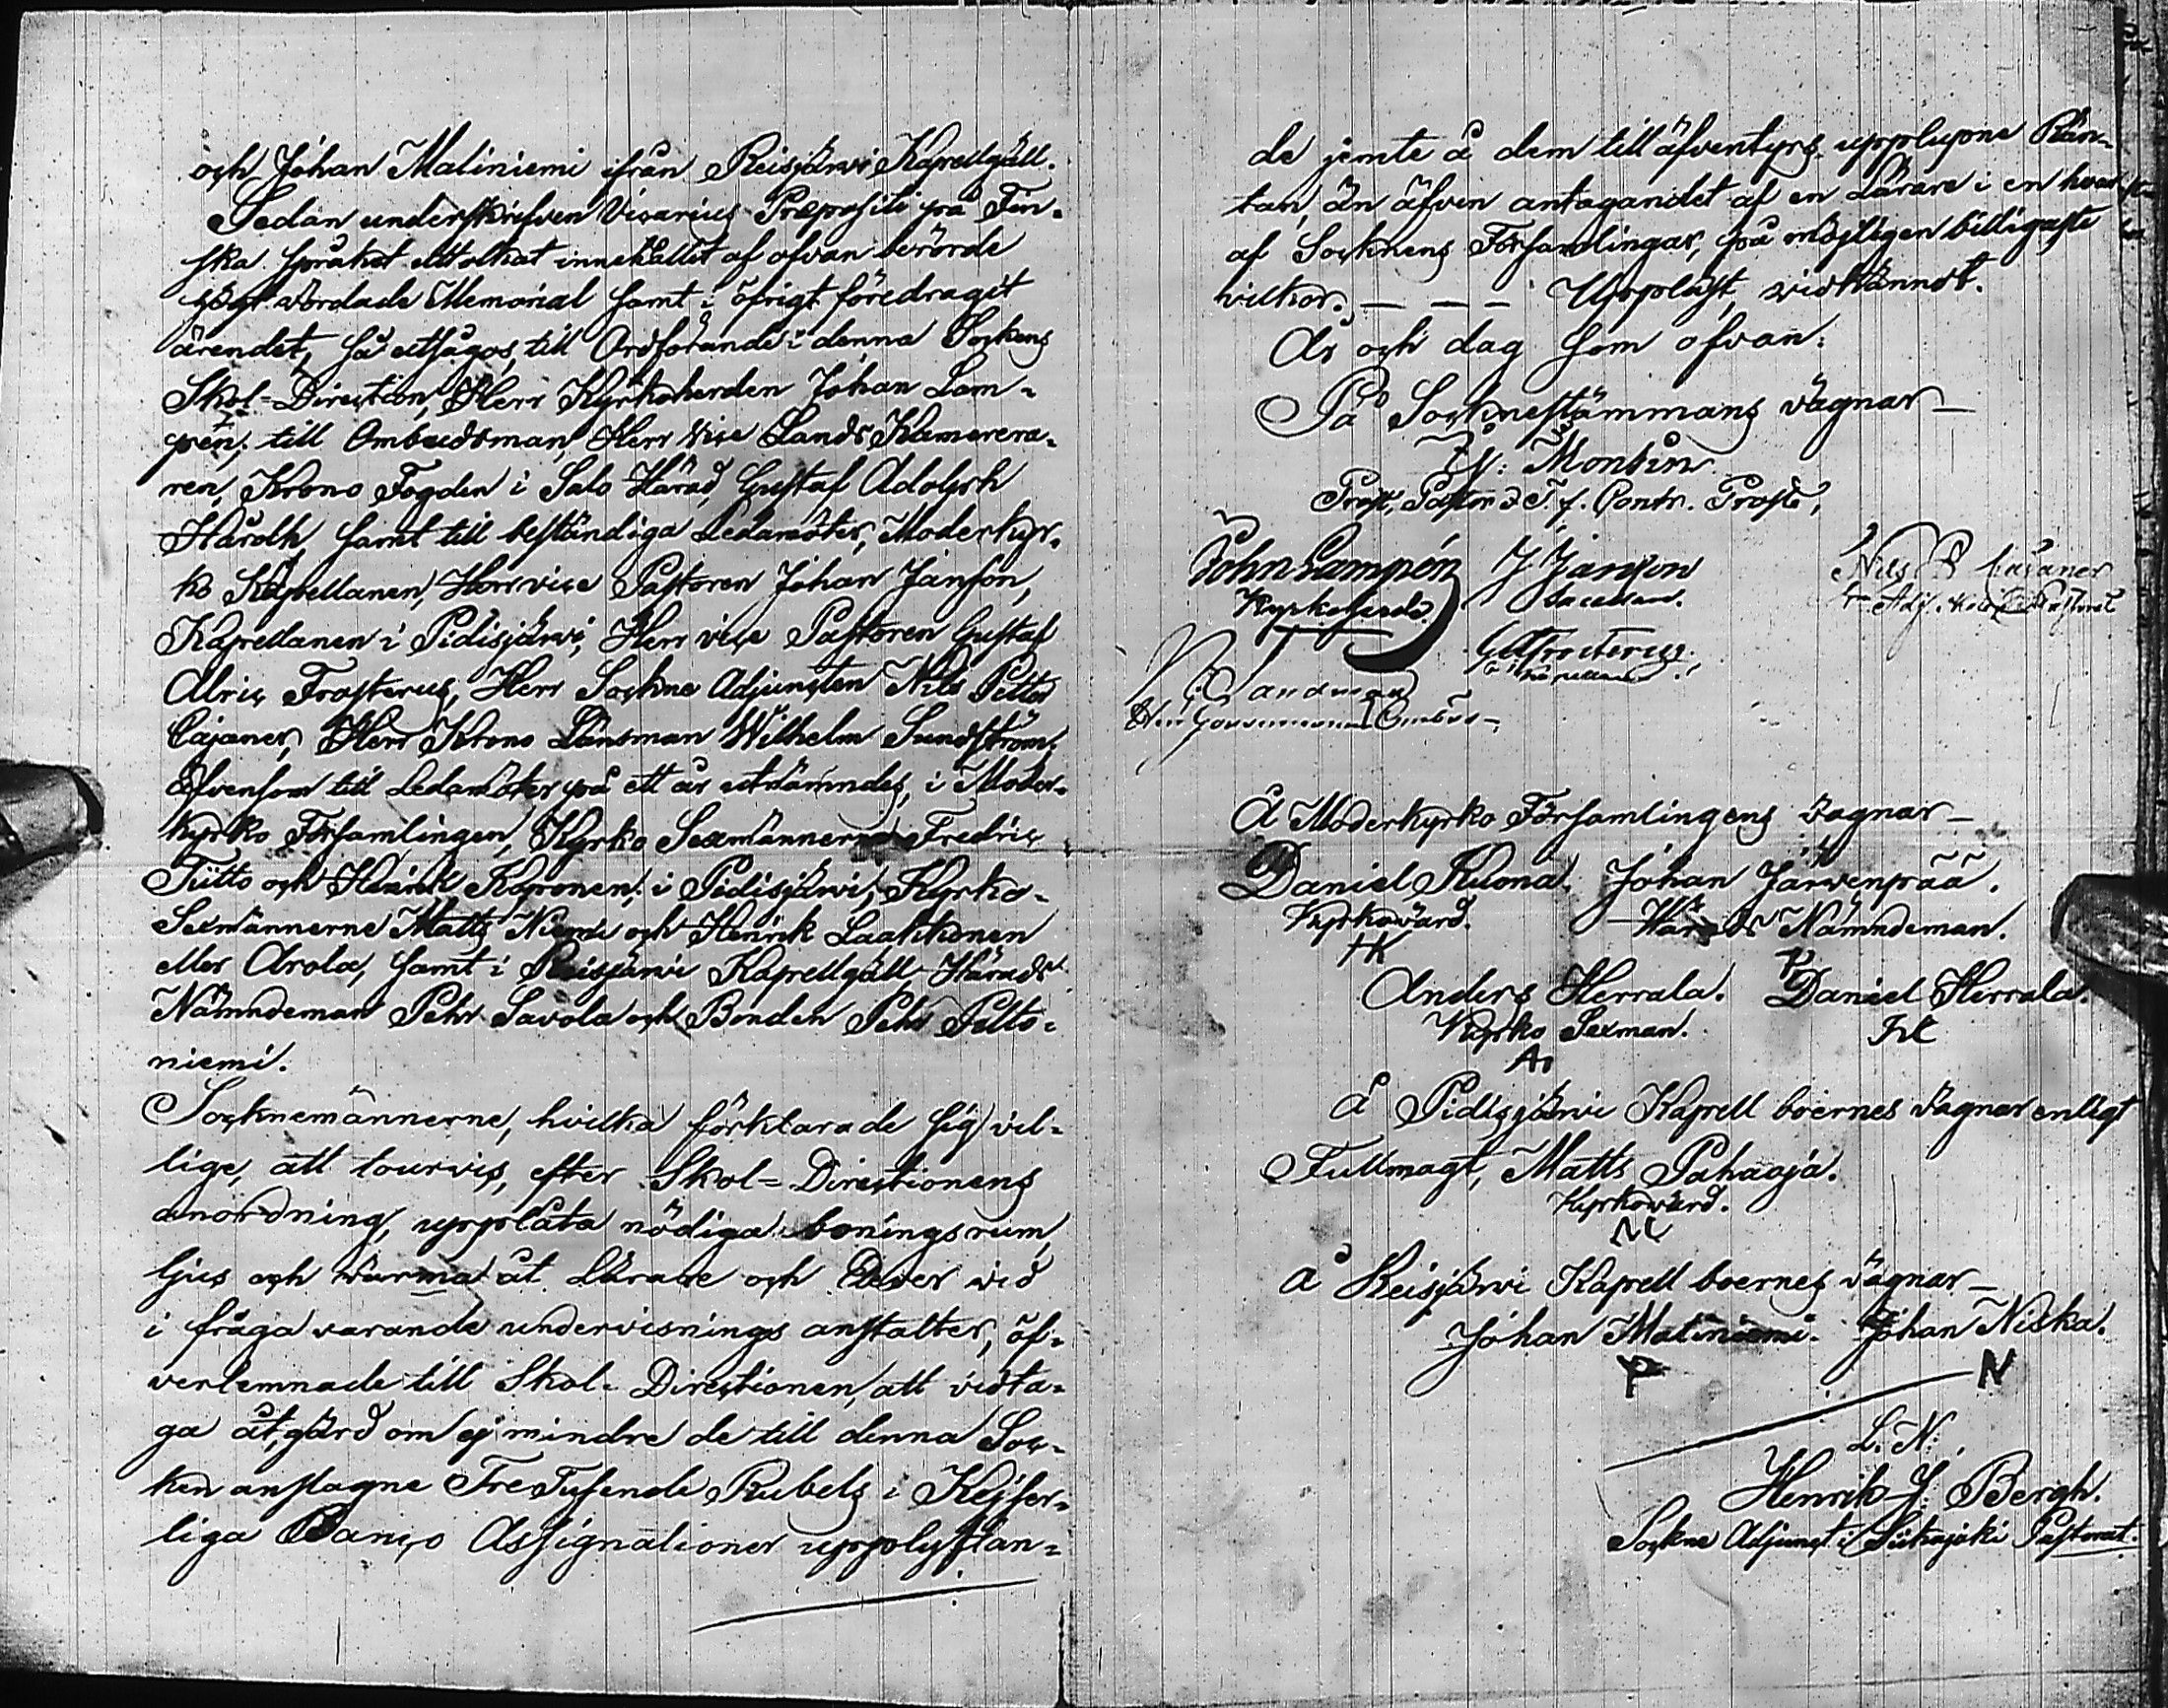 och Johan Maliniemi ifrån Reisjärvi Kapellgäll.
Sedan underskrifven Vicarius Præpositi på Fin-
ska språket uttolkat innehållet af ofvan berörde
högt vördade Memorial samt i öfrigt föredragit
ärendet, så utsågos, till Ordförande i denna Sockens
Skol-Direction, Herr Kyrkoherden Johan Lam-
pén; till Ombudsman, Herr Vice Lands Kamerera-
ren, Krono Fogden i Salo Härad, Gustaf Adolph
Hårdh, samt till beständiga Ledamöter, Moderkyr-
ko Kapellanen, Herr vice Pastoren Johan Janson,
Kapellanen i Pidisjärvi, Herr vice Pastoren Gustaf
Alric Frosterus, Herr Sockne Adjuncten Nils Petter
Cajaner, Herr Krono Länsman Wilhelm Sundström;
Äfvensom till Ledamöter på ett år utnämndes, i Moder-
kyrko Församlingen, Kyrko Sexmännerne Fredric
Tütto och Henrik Kaponen; i Pidisjärvi, Kyrko-
Sexmännerne Matts Niemi och Henrik Laakkonen
eller Arola, samt i Reisjärvi Kapellgäll, Härads
Nämndeman Pehr Savola och Bonden Pehr Pelto-
niemi.
Socknemännerne, hvilka förklarade sig vil-
lige, att tourvis, efter Skol-Directionens
anordning, upplåta nödiga boningsrum,
ljus och värma åt Lärare och Elever vid
i fråga varande undervisnings anstalter, öf-
verlemnade till Skol-Directionen, att vidta-
ga åtgärd om ej mindre de till denna Soc-
ken anslagne Tre Tusende Rubels i Kejser-
liga Banco Assignationer upplystan-
de jemte å dem till äfventyrs upplupne Rän-
tan, än äfven antagandet af en Lärare i en hvar
af Socknens Församlingar, på möjligen billigaste
vilkor. — — — Uppläst, vidkänndt.
År och dag som ofvan.
På Socknestämmans vägnar —
Z: Montin
Prost, Pastor & T. f. Contr. Prost,
John Lampén J Janson Nils P Cajaner
Kyrkoherde. Sacellan. Adj.
G A Frosterus
Kapellan
Å Moderkyrko Församlingens vägnar —
Daniel Ruona. Johan Järvenpää.
Kyrkovärd. Härads Nämndeman.
HK
Anders Herrala. Daniel Herrala.
Kyrko Sexman.
Å Pidisjärvi Kapell boernes vägnar enligt
Fullmagt, Matts Pahaoja.
Kyrkovärd.
Å Reisjärvi Kapell boernes vägnar —
Johan Maliniemi. Johan Niska.
P N
L. N:
Henrik J. Bergh.
Sockne Adjunct i Siikajoki Pastorat.